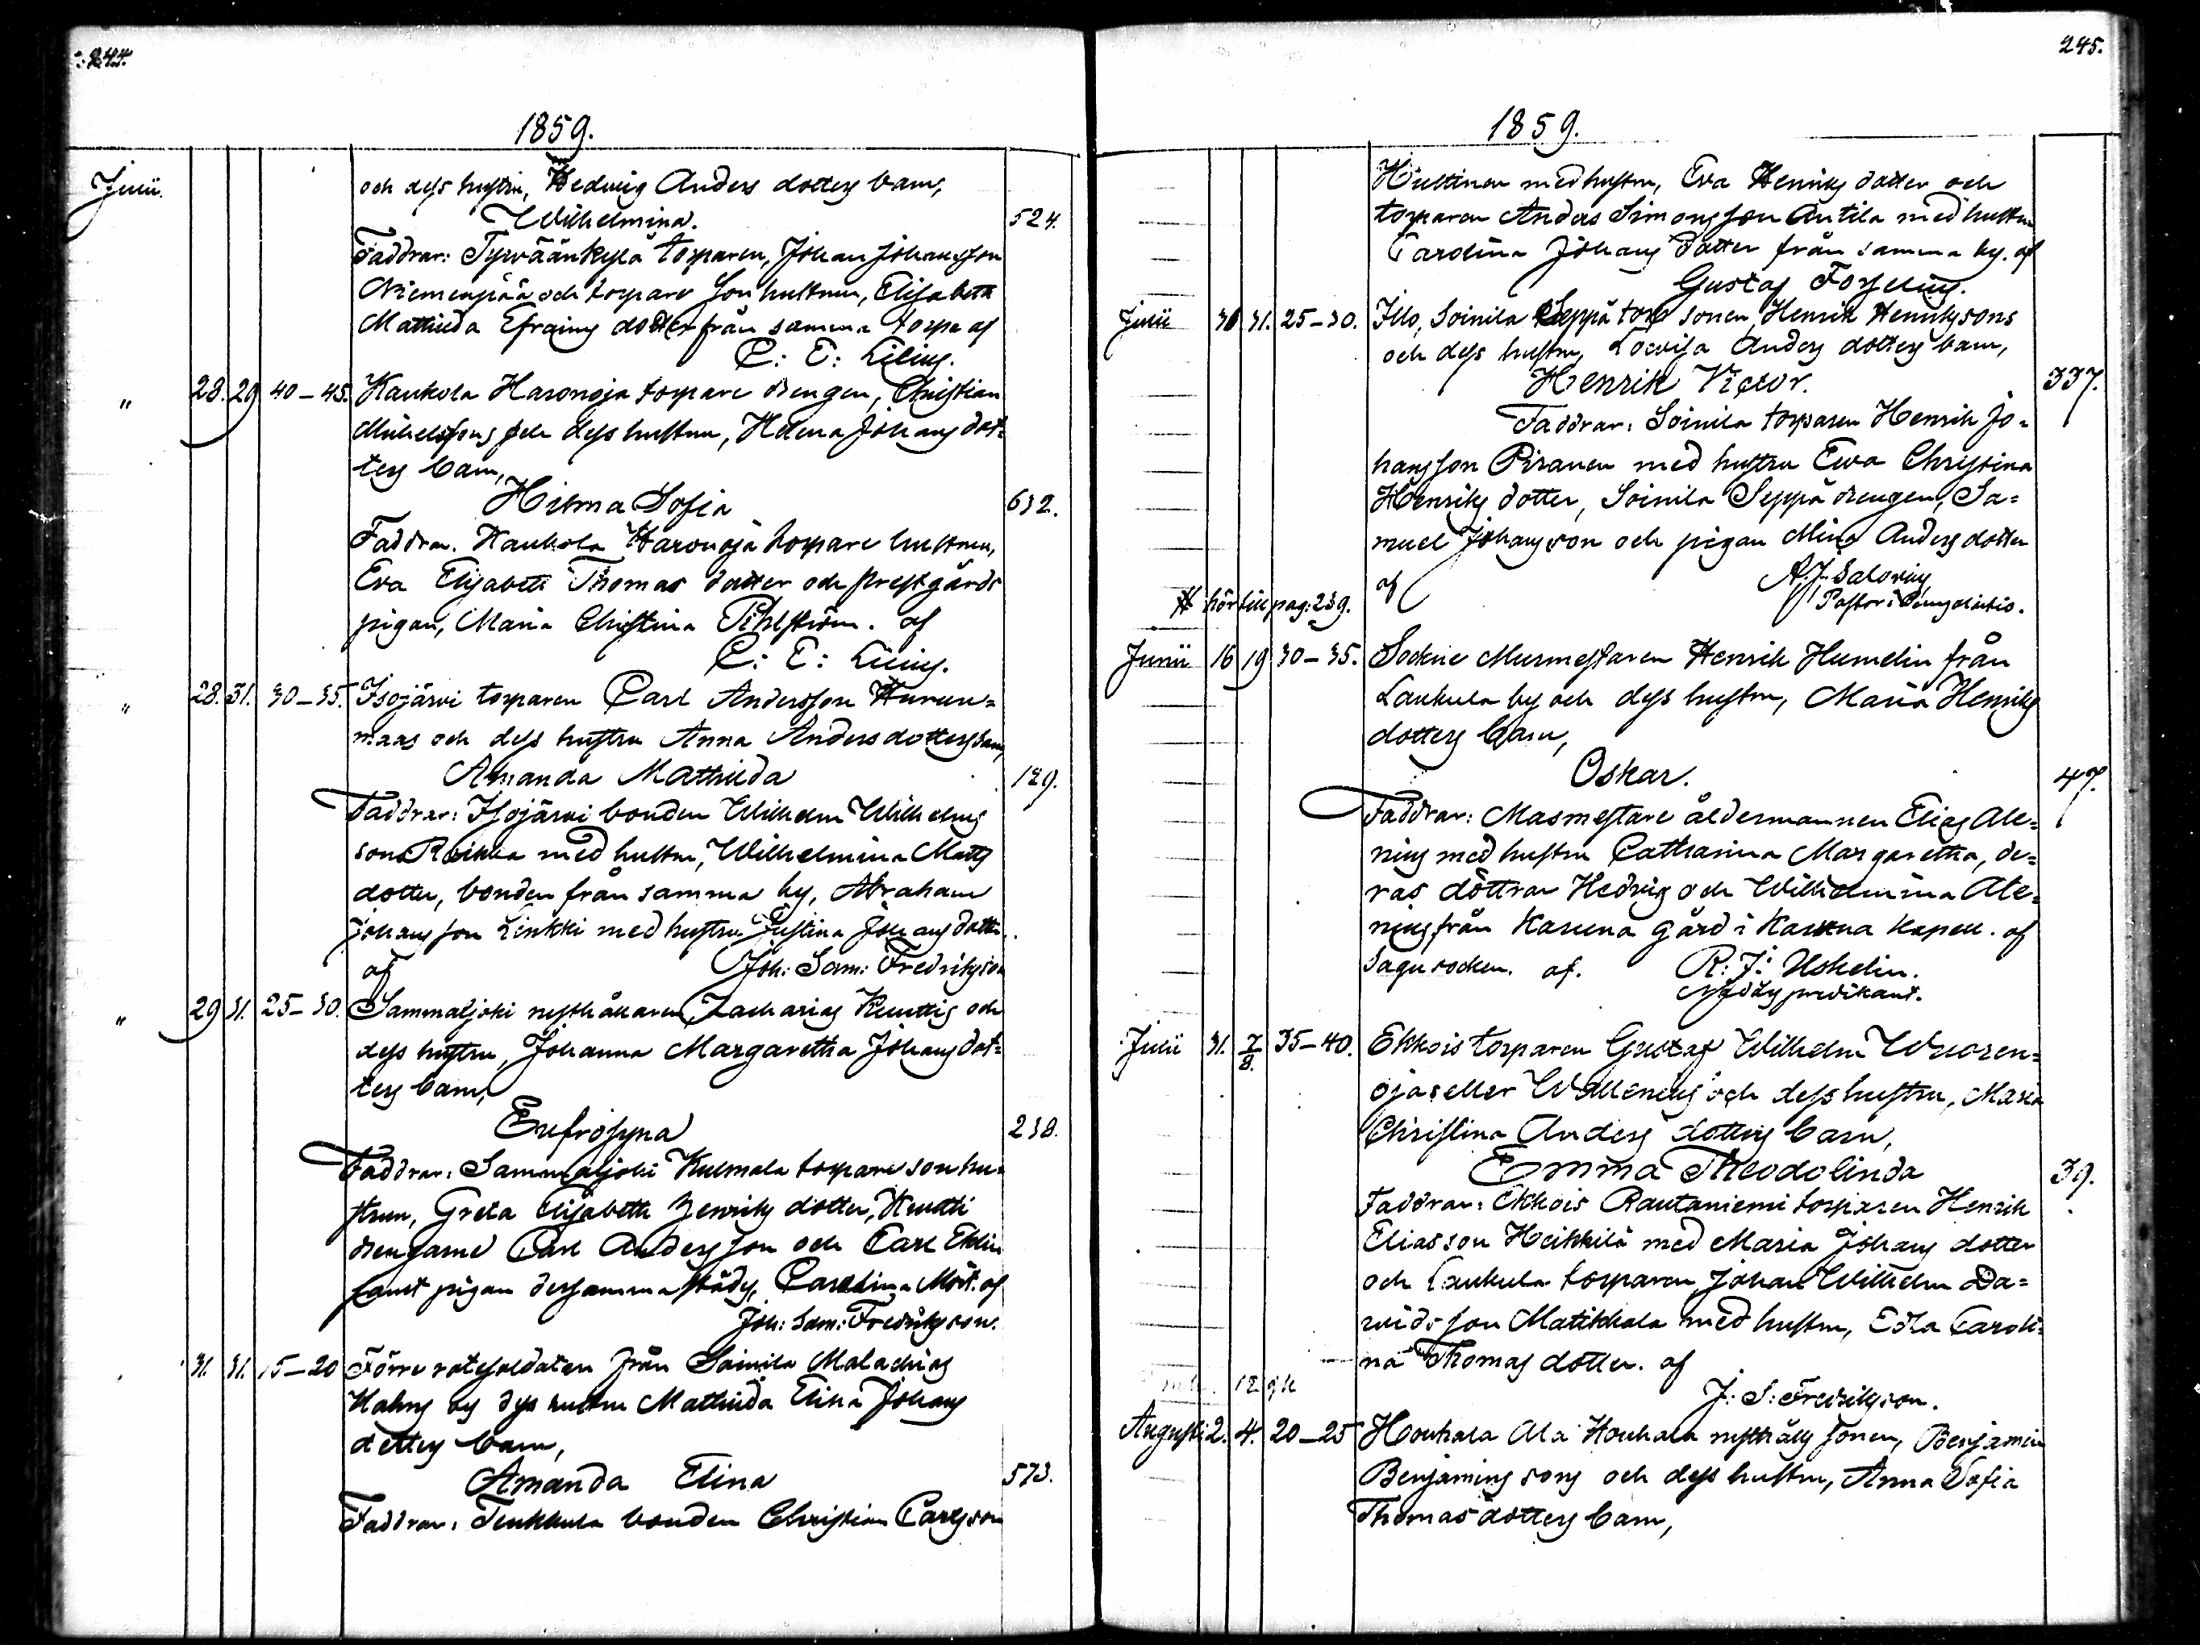 244.
1859.
Julii. och dess hustru, Hedwig Anders dotters barn,
Wilhelmina. 524.
Faddrar: Tyrväänkylä torparen, Johan Johansson
Niemenpää och torpare son hustrun, Elisabeth
Mathilda Efraims dotter från samma torpa af
C: E: Lilius.
" 28. 29 40–45. Kaukola Haronoja torpare drengen, Christian
Michelssons och dess hustru, Helena Johans dot=
ters barn,
Hilma Sofia 632.
Faddrar. Kaukola Haronoja torpare hustrun,
Eva Elisabeth Thomas dotter och prestgårds
pigan, Maria Christina Pihlström. af
C: E: Lilius.
" 28. 31. 30–35. Isojärvi torparen Carl Andersson Huren=
maas och dess hustru Anna Anders dotters barn,
Amanda Mathilda 129.
Faddrar: Isojärvi bonden Wilhelm Wilhelms
sons Roikka med hustru, Wilhelmina Matts
dotter, bonden från samma by, Abraham
Johansson Linkki med hustru Justina Johans dotter.
af Joh: Sam: Fredriksson
" 29 31. 25–30. Sammaljoki rusthållaren Zacharias Knuttis och
dess hustru, Johanna Margaretha Johans dot=
ters barn,
Eufrosyna 238.
Faddrar: Sammaljoki Kulmala torpare son hu=
strun, Greta Elisabeth Henriks dotter, Knutti
drengarne Carl Andersson och Carl Eklin
samt pigan dersamma städs, Carolina Mört. af
Joh: Sam: Fredriksson.
31. 31. 15–20 Förre rotesoldaten från Soinila Malachias
Hahns och dess hustru Mathilda Elina Johans
dotters barn,
Amanda Elina 573.
Faddrar: Tenkkula bonden Christian Carlsson
245.
1859.
Huttinen med hustru, Eva Henriks dotter och
torparen Anders Simonsson Antila med hustru
Carolina Johans dotter från samma by. af
Gustaf Forselius.
Julii 30 31. 25–30. Illo, Soinila Seppä torp sonen Henrik Henrikssons
och dess hustru, Lovisa Anders dotters barn,
Henrik Victor. 337.
Faddrar: Soinila torparen Henrik Jo=
hansson Piranen med hustru Eva Christina
Henriks dotter, Soinila Seppä drengen, Sa=
muel Johansson och pigan Mina Anders dotter
af A. J. Salovius
Pastor i Pungalaitio.
# hör till pag: 239.
Junii 16 19 30–35. Sockne Murmestaren Henrik Humelin från
Laukula by och dess hustru, Maria Henriks
dotters barn,
Oskar. 47.
Faddrar: Masmestare åldermannen Elias Ale=
nius med hustru Catharina Margaretha, de=
ras döttrar Hedvig och Wilhelmina Ale=
nius från Karuna gård i Karuna kapell. af
Sagu socken. af. R: J: Uskelin.
Nådås predikant.
Julii 31. 7/8. 35–40. Ekkois torparen Gustaf Wilhelm Wuoren=
ojas eller Wallenius och dess hustru, Maria
Christina Anders dotters barn,
Emma Theodolinda 39.
Faddrar: Ekkois Rautaniemi torparen Henrik
Eliasson Heikkilä med Maria Johans dotter
och Laukula torparen Johan Wilhelm Da=
vidsson Matikkala med hustru, Edla Caroli=
na Thomas dotter. af
J: S: Fredriksson.
Augusti 2. 4. 20–25 Houhala Ala Houhala rusthålls sonen, Benjamin
Benjamins sons och dess hustru, Anna Sofia
Thomas dotters barn,